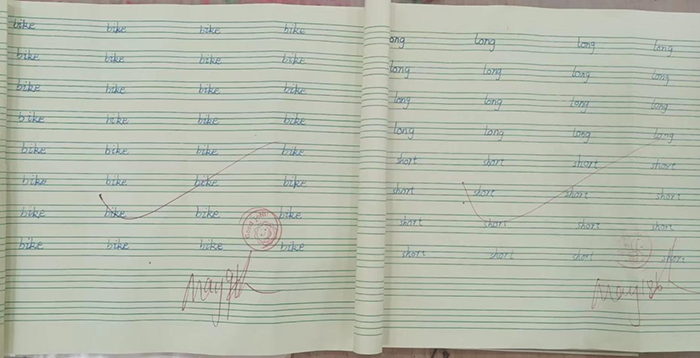 bike bike bike bike
bike bike bike bike
bike bike bike bike
bike bike bike bike
bike bike bike bike
bike bike bike bike
bike bike bike bike
bike bike bike bike
long long long long
long long long long
long long long long
long long long long
short short short short
short short short short
short short short short
short short short short